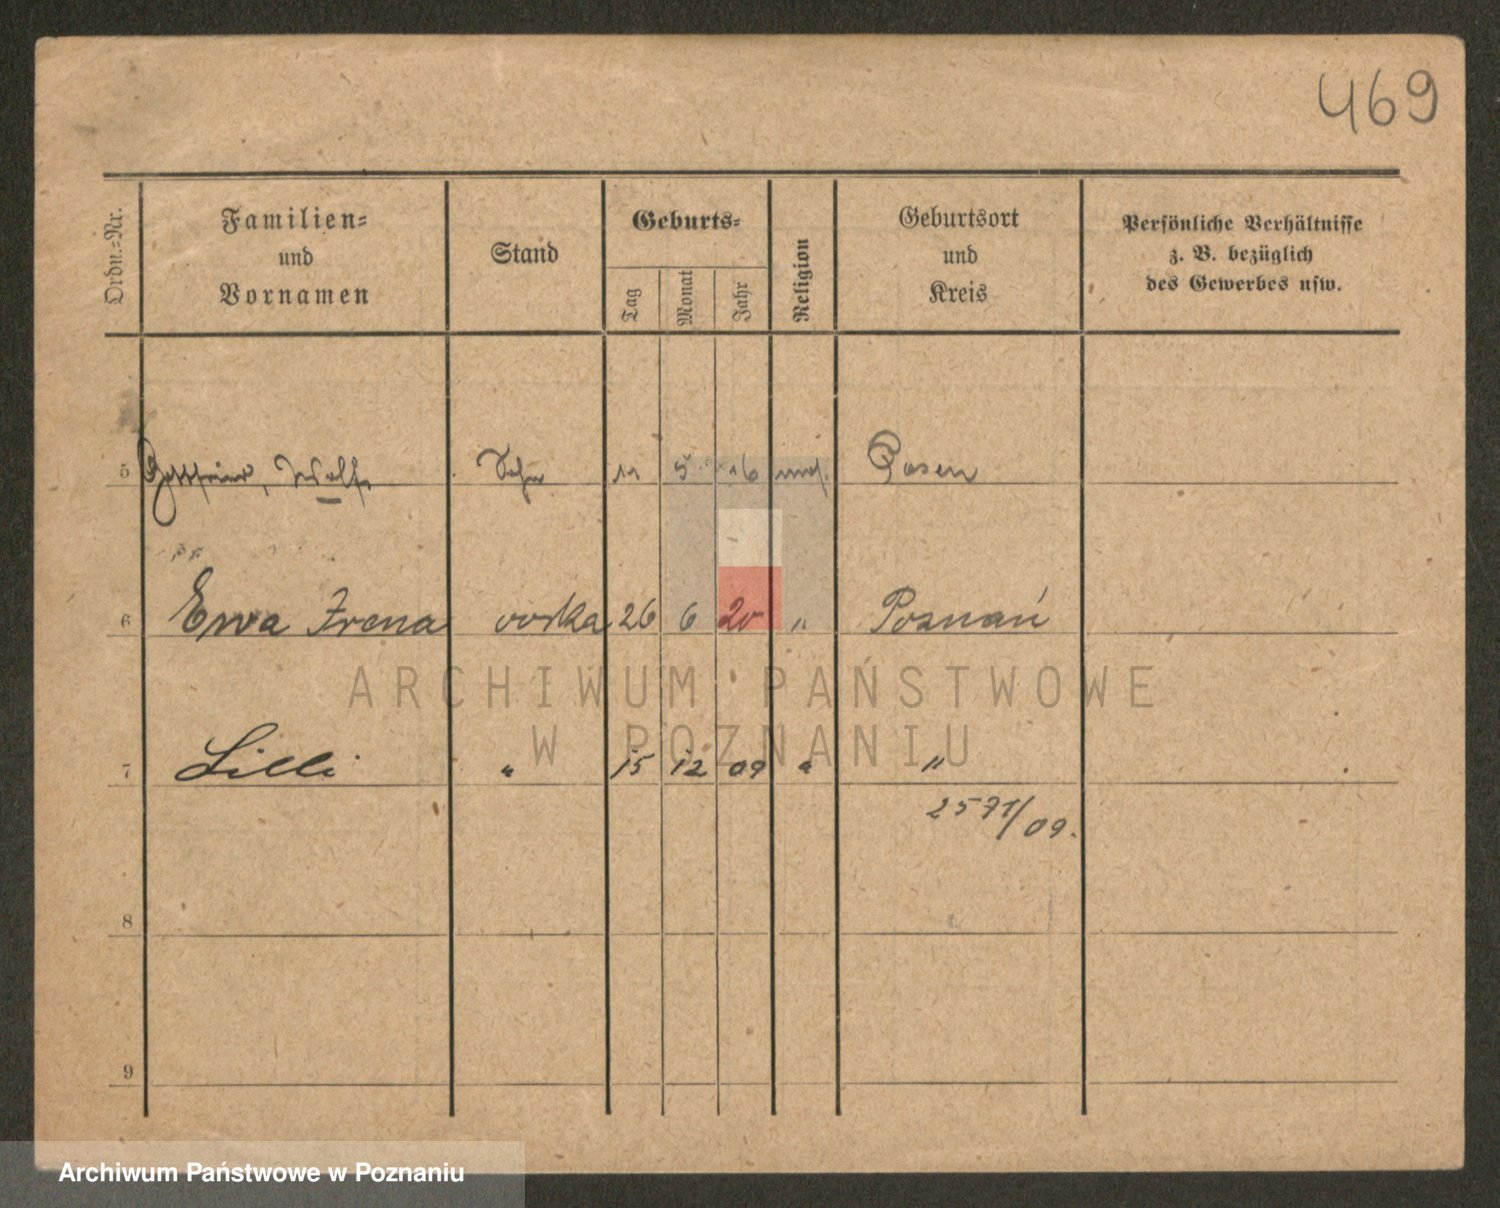 469
Ordn.=Nr.
Familien=
und
Vornamen
Stand
Geburts=
Tag
Monat
Jahr
Religion
Geburtsort
und
Kreis
Persönliche Verhältnisse
z. B. bezüglich
des Gewerbes usw.
5 Gottfried, Wolf Sohn 5 16 Posen
6 Ewa Irena 26 6 20 " Poznań
ARCHIWUM PAŃSTWOWE
W POZNANIU
7 Lilli " 15 12 09 " "
2571/09.
8
9
Archiwum Państwowe w Poznaniu